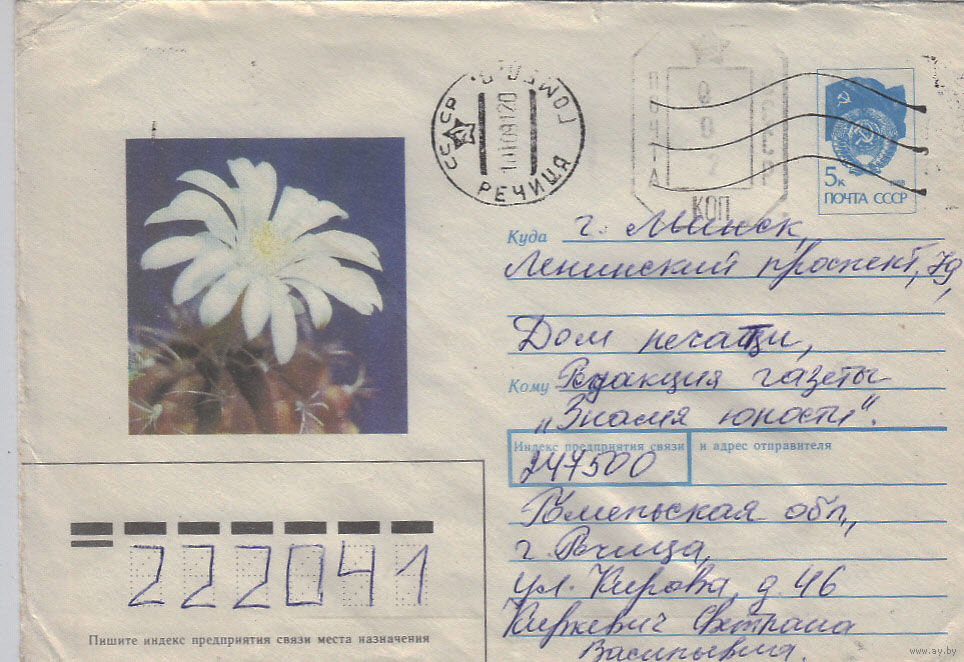 ГОМЕЛ. О.
СССР
РЕЧИЦА
ПОЧТА
СССР
КОП
5к 1988
ПОЧТА СССР
Куда г. Минск,
Ленинский проспект, 79,
Дом печати,
Кому Редакция газеты
„Знамя юности“.
Индекс предприятия связи и адрес отправителя
247500
Гомельская обл.,
г. Речица,
ул. Кирова, д. 46
Киркевич Светлана
Васильевна.
222041
Пишите индекс предприятия связи места назначения
www.ay.by